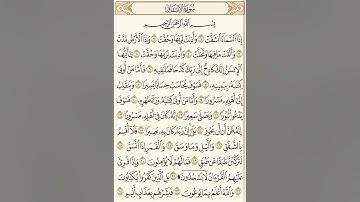 سُورَةُ الانْشِقَاقِ
بِسْمِ اللَّهِ الرَّحْمَٰنِ الرَّحِيمِ
إِذَا السَّمَاءُ انشَقَّتْ ١ وَأَذِنَتْ لِرَبِّهَا وَحُقَّتْ ٢ وَإِذَا الْأَرْضُ مُدَّتْ
٣ وَأَلْقَتْ مَا فِيهَا وَتَخَلَّتْ ٤ وَأَذِنَتْ لِرَبِّهَا وَحُقَّتْ ٥ يَٰأَيُّهَا
الْإِنسَٰنُ إِنَّكَ كَادِحٌ إِلَىٰ رَبِّكَ كَدْحًا فَمُلَٰقِيهِ ٦ فَأَمَّا مَنْ أُوتِيَ
كِتَٰبَهُ بِيَمِينِهِ ٧ فَسَوْفَ يُحَاسَبُ حِسَابًا يَسِيرًا ٨ وَيَنقَلِبُ
إِلَىٰ أَهْلِهِ مَسْرُورًا ٩ وَأَمَّا مَنْ أُوتِيَ كِتَٰبَهُ وَرَاءَ ظَهْرِهِ ١٠ فَسَوْفَ
يَدْعُوا ثُبُورًا ١١ وَيَصْلَىٰ سَعِيرًا ١٢ إِنَّهُ كَانَ فِي أَهْلِهِ مَسْرُورًا ١٣
إِنَّهُ ظَنَّ أَن لَّن يَحُورَ ١٤ بَلَىٰ إِنَّ رَبَّهُ كَانَ بِهِ بَصِيرًا ١٥ فَلَا أُقْسِمُ
بِالشَّفَقِ ١٦ وَاللَّيْلِ وَمَا وَسَقَ ١٧ وَالْقَمَرِ إِذَا اتَّسَقَ ١٨
لَتَرْكَبُنَّ طَبَقًا عَن طَبَقٍ ١٩ فَمَا لَهُمْ لَا يُؤْمِنُونَ ٢٠ وَإِذَا قُرِئَ
عَلَيْهِمُ الْقُرْءَانُ لَا يَسْجُدُونَ ۩ ٢١ بَلِ الَّذِينَ كَفَرُوا يُكَذِّبُونَ
٢٢ وَاللَّهُ أَعْلَمُ بِمَا يُوعُونَ ٢٣ فَبَشِّرْهُم بِعَذَابٍ أَلِيمٍ ٢٤